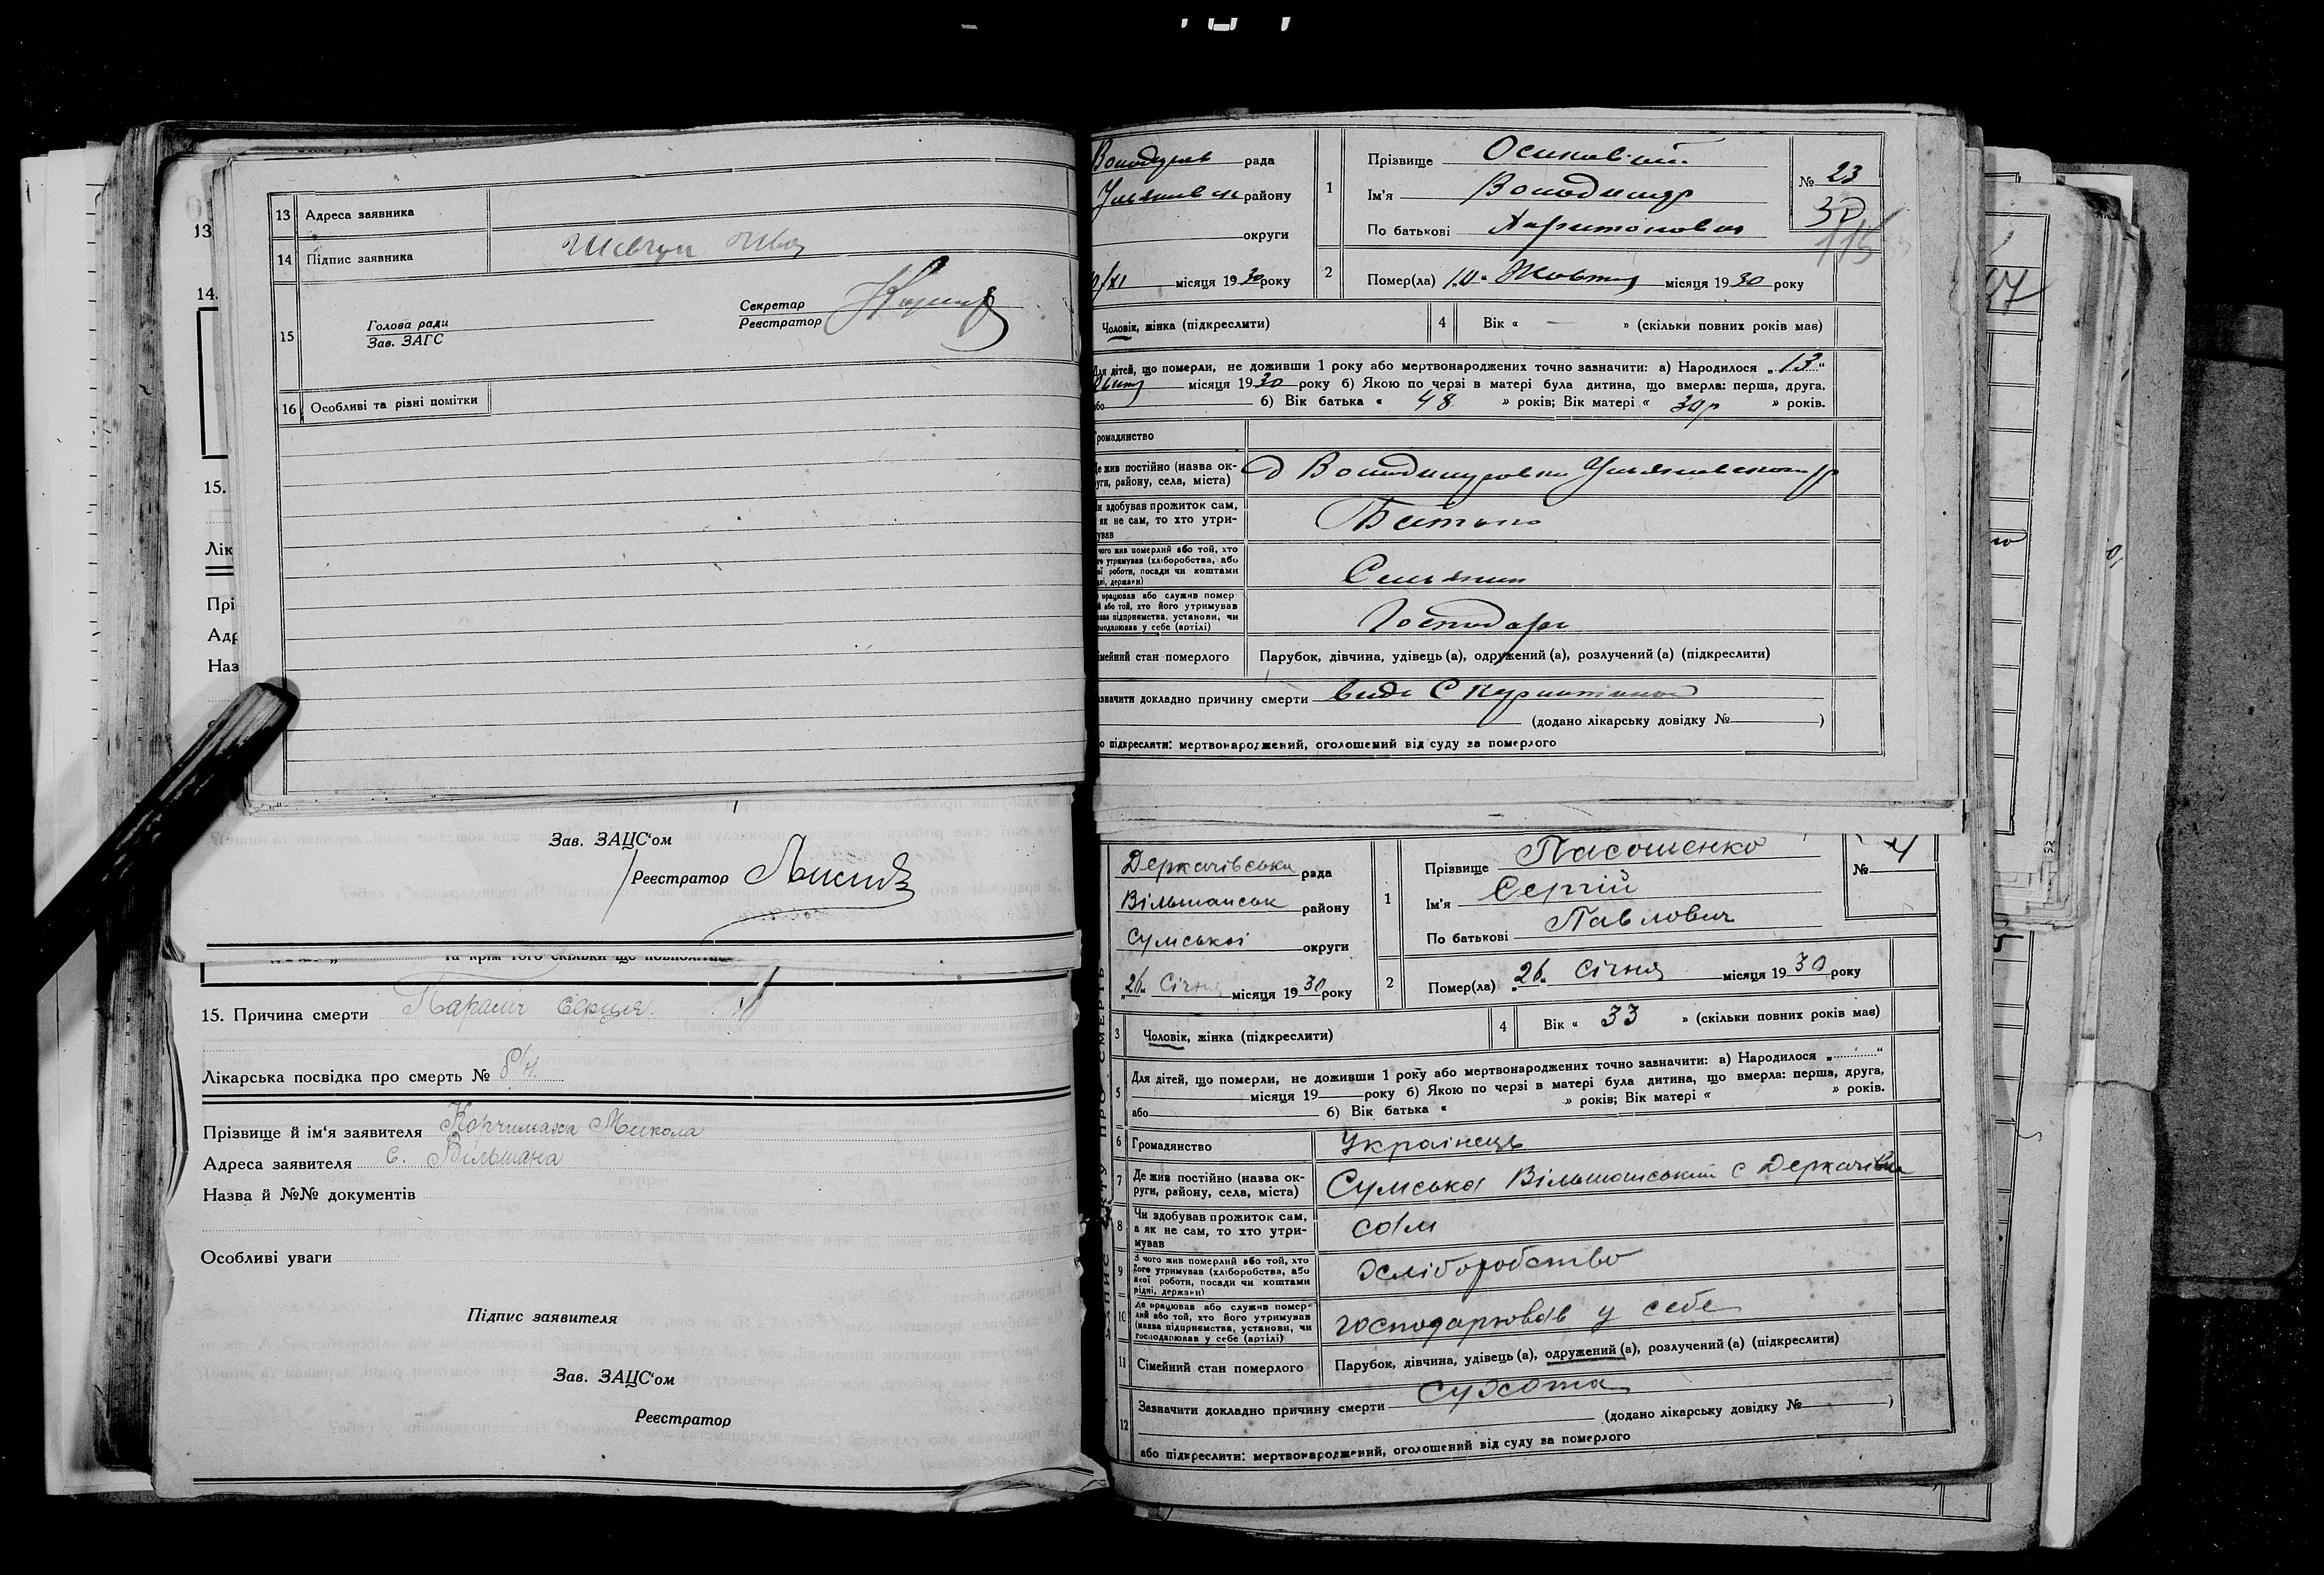 13 Адреса заявника
14 Підпис заявника
15 Голова ради
Зав. ЗАГС
Секретар
Реєстратор
16 Особливі та різні помітки
13
14.
15.
Лік
Прі
Адр
Наз
Зав. ЗАЦС‘ом
Реєстратор
15. Причина смерти Параліч серця.
Лікарська посвідка про смерть № б/н.
Прізвище й ім‘я заявителя Микола
Адреса заявителя с. Вільшана
Назва й №№ документів
Особливі уваги
Підпис заявителя
Зав. ЗАЦС‘ом
Реєстратор
рада
району
округи
місяця 1930 року
1 Прізвище
Ім'я Володимир
По батькові Харитонович
№ 23
30
115
2 Помер(ла) „10“ Жовтня місяця 1930 року
Чоловік, жінка (підкреслити)
4 Вік « — » (скільки повних років має)
Для дітей, що померли, не доживши 1 року або мертвонароджених точно зазначити: а) Народилося „13“
місяця 1930 року б) Якою по черзі в матері була дитина, що вмерла: перша, друга,
або 6) Вік батька « 48 » років; Вік матері « » років.
громадянство
Де жив постійно (назва ок-
руги, району, села, міста)
Чи здобував прожиток сам,
як не сам, то хто утри-
мував
Батько
чого жив померлий або той, хто
його утримував (хліборобства, або
якої роботи, посади чи коштами
рідні, держави)
Селянин
працював або служив помер-
лий або той, хто його утримував
назва підприємства, установи, чи
господарював у себе (артілі)
Господарь
сімейний стан померлого Парубок, дівчина, удівець (а), одружений (а), розлучений (а) (підкреслити)
зазначити докладно причину смерти
(додано лікарську довідку № )
або підкреслити: мертвонароджений, оголошений від суду за померлого
Деркачівська рада
Вільшанськ району
Сумської округи
„26“ Січня місяця 1930 року
1 Прізвище Пасошенко
Ім'я Сергій
По батькові Павлович
№ 4
2 Помер(ла) „26“ Січня місяця 1930 року
3 Чоловік, жінка (підкреслити)
4 Вік « 33 » (скільки повних років має)
5 Для дітей, що померли, не доживши 1 року або мертвонароджених точно зазначити: а) Народилося „ “
місяця 19 року б) Якою по черзі в матері була дитина, що вмерла: перша, друга,
або 6) Вік батька « » років; Вік матері « » років.
6 Громадянство Українець
7 Де жив постійно (назва ок-
руги, району, села, міста)
Сумська Вільшанський с Деркачівка
8 Чи здобував прожиток сам,
а як не сам, то хто утри-
мував
сам
9 З чого жив померлий або той, хто
його утримував (хліборобства, або
якої роботи, посади чи коштами
рідні, держави)
Хліборобство
10 Де працював або служив помер-
лий або той, хто його утримував
(назва підприємства, установи, чи
господарював у себе (артілі)
господарював у себе
11 Сімейний стан померлого Парубок, дівчина, удівець (а), одружений (а), розлучений (а) (підкреслити)
12 Зазначити докладно причину смерти Сухота
(додано лікарську довідку № )
або підкреслити: мертвонароджений, оголошений від суду за померлого